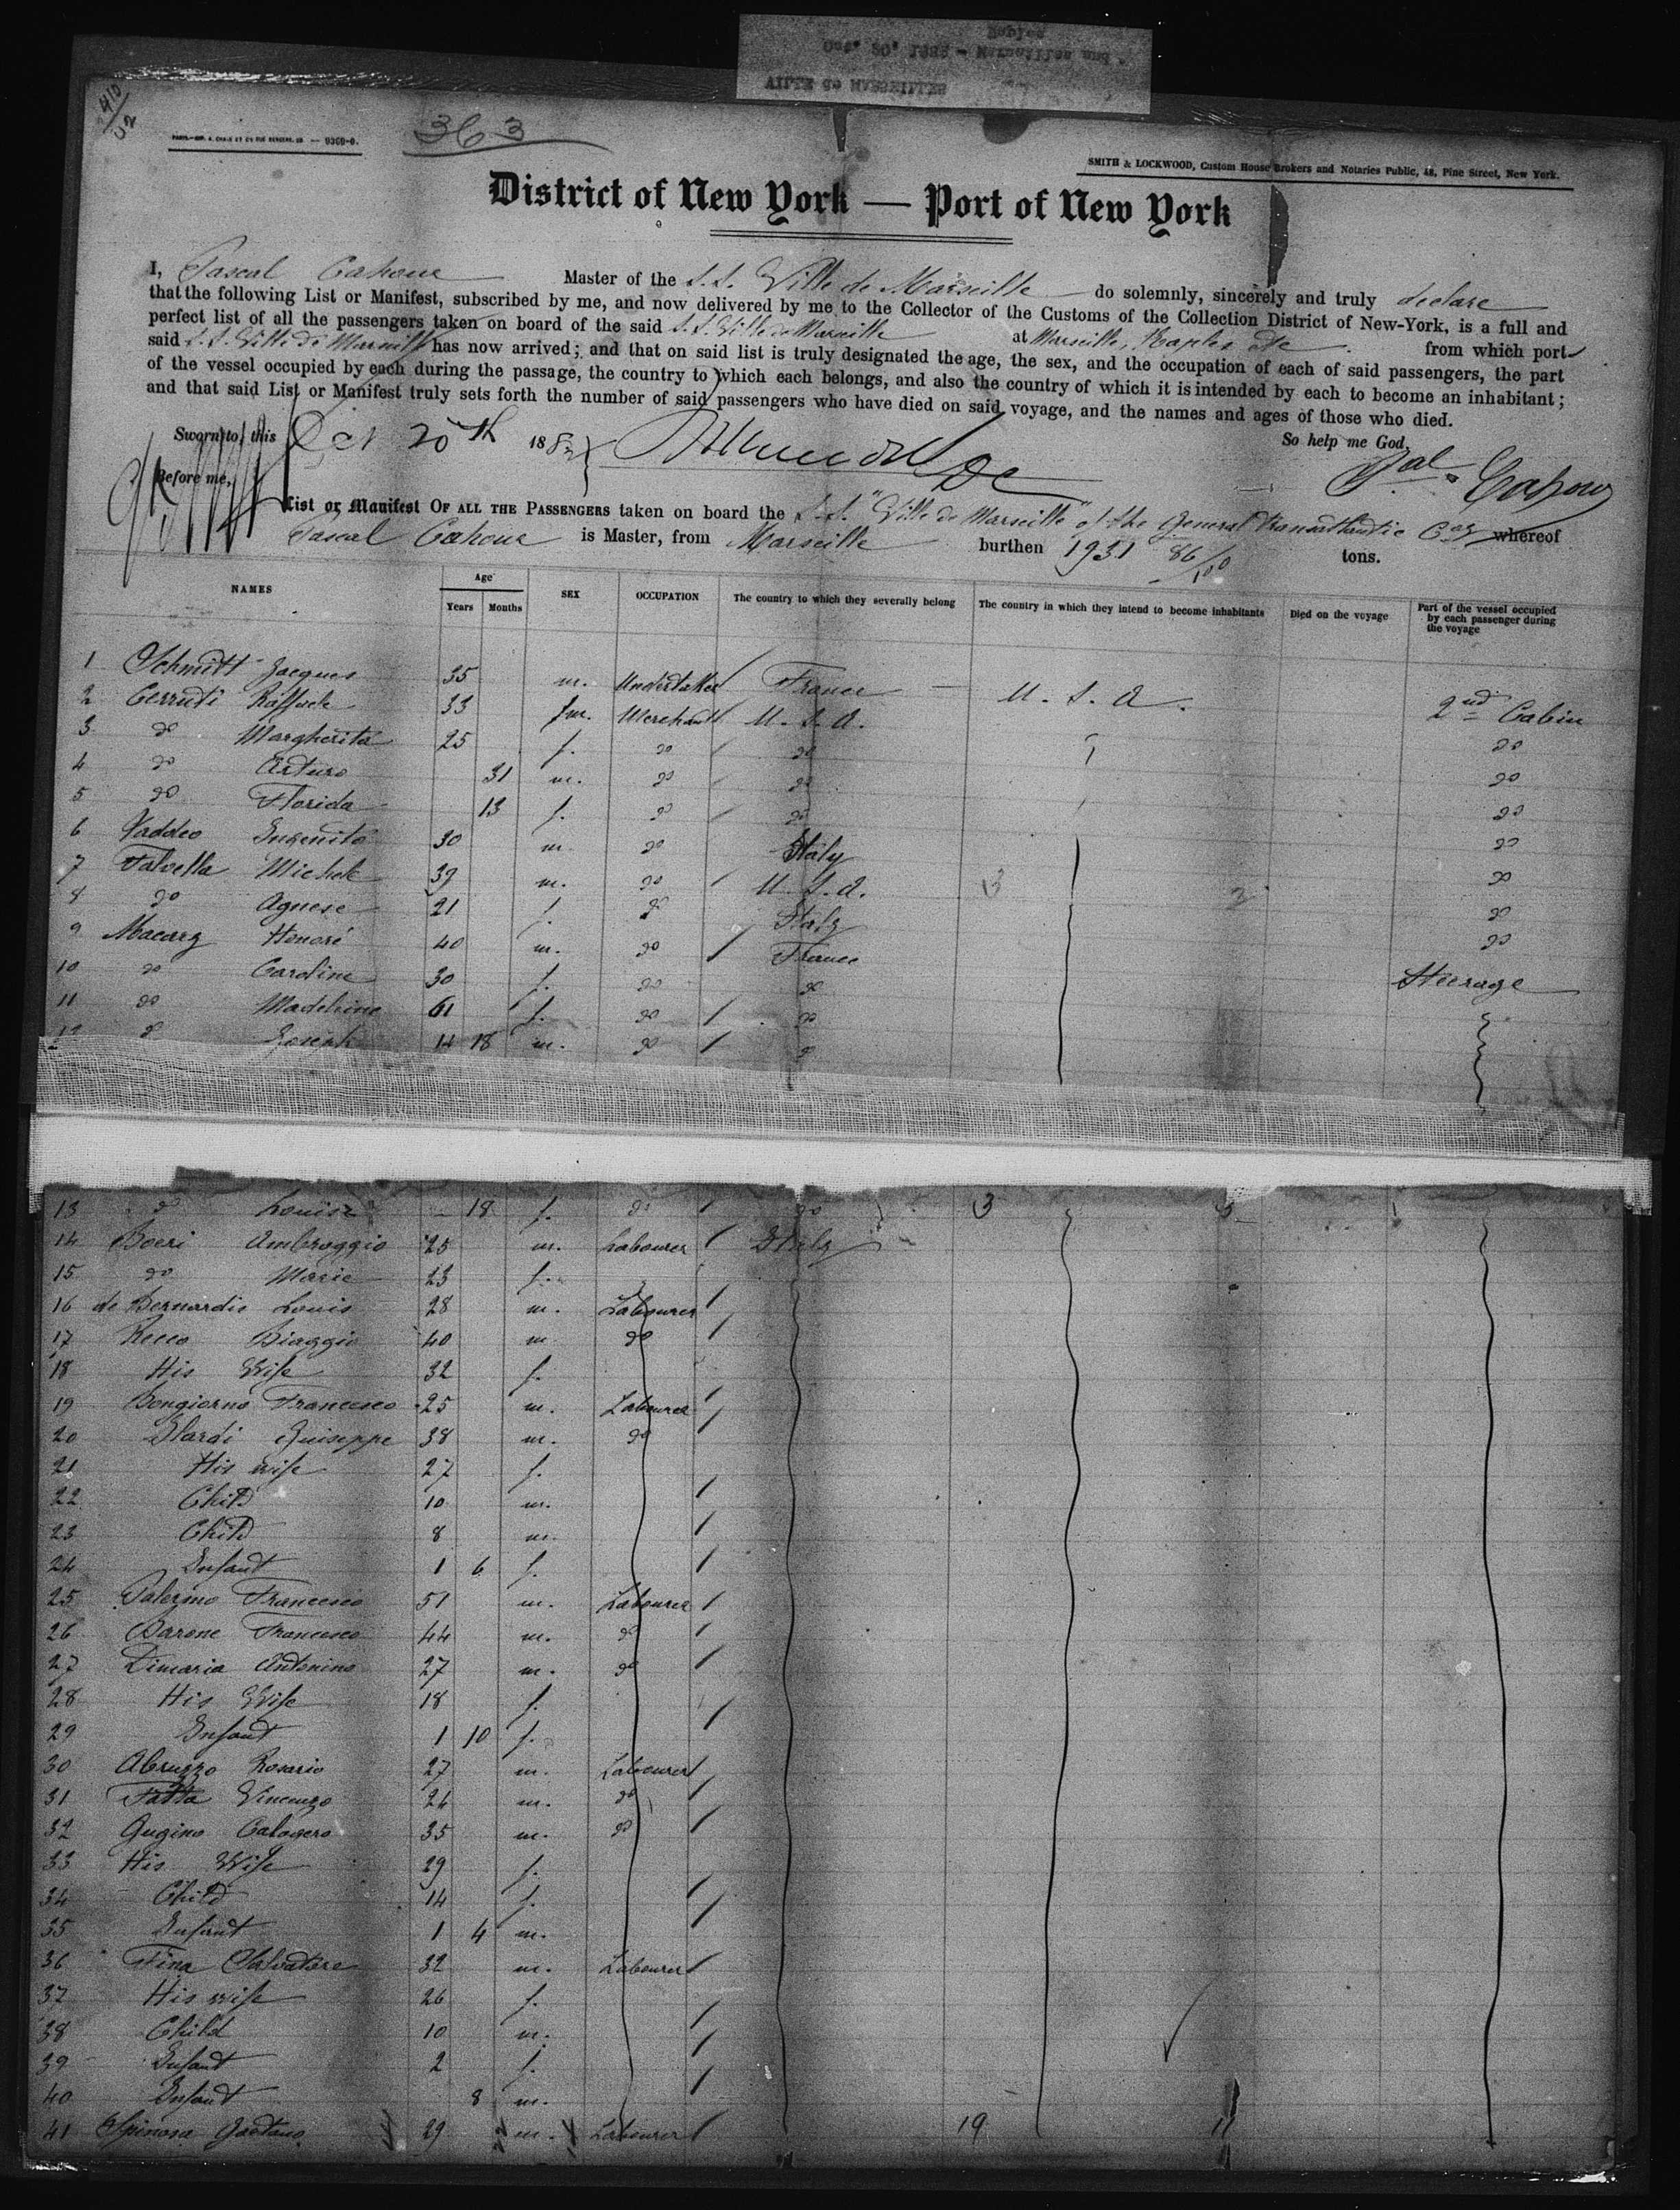 410
52
363
PARIS.—IMP. A. CHAIX ET Cie RUE BERGERE, 20 — 9360-0.
SMITH & LOCKWOOD, Custom House Brokers and Notaries Public, 48, Pine Street, New York.
District of New York — Port of New York
I, Pascal Cahour Master of the S.S. Ville de Marseille do solemnly, sincerely and truly declare
that the following List or Manifest, subscribed by me, and now delivered by me to the Collector of the Customs of the Collection District of New-York, is a full and
perfect list of all the passengers taken on board of the said S.S. Ville de Marseille at Marseille, Naples etc from which port
said S.S. Ville de Marseille has now arrived; and that on said list is truly designated the age, the sex, and the occupation of each of said passengers, the part
of the vessel occupied by each during the passage, the country to which each belongs, and also the country of which it is intended by each to become an inhabitant;
and that said List or Manifest truly sets forth the number of said passengers who have died on said voyage, and the names and ages of those who died.
Sworn to, this Oct 20th 188 So help me God,
Before me, Pal Cahour
List or Manifest OF ALL THE PASSENGERS taken on board the S.S. "Ville de Marseille" of the General Transatlantic Coy whereof
Pascal Cahour is Master, from Marseille burthen 1931 86/100 tons.
NAMES Age Years Months SEX OCCUPATION The country to which they severally belong The country in which they intend to become inhabitants Died on the voyage Part of the vessel occupied by each passenger during the voyage
1 Schmitt Jacques 35 m. Undertaker France U. S. A. 2nd Cabin
2 Cerruti Raffaele 33 m. Merchant U. S. A. do
3 do Margherita 25 f. do do do
4 do Arturo 31 m. do do do
5 do Florida 13 f. do do do
6 Taddeo Ingenito 30 m do Italy do
7 Falvella Michele 39 m. do U. S. A. do
8 do Agnese 21 f. do Italy do
9 Macary Honoré 40 m. do France Steerage
10 do Caroline 30 f. do do
11 do Madeleine 61 f. do do
12 do Joseph 14 18 m. do do
13 do Louise 18 f. do do 3
14 Boeri Ambroggio 25 m. Labourer Italy
15 do Marie 23 f.
16 de Bernardis Louis 28 m. Labourer
17 Recco Biaggio 40 m do
18 His Wife 32 f.
19 Bongiorno Francesco 25 m. Labourer
20 Ilardi Guiseppe 38 m. do
21 His wife 27 f.
22 Child 10 m.
23 Child 8 m.
24 Infant 1 6 f.
25 Palermo Francesco 51 m. Labourer
26 Barone Francesco 44 m. do
27 Dimaria Antonino 27 m. do
28 His Wife 18 f.
29 Infant 1 10 f.
30 Abruzzo Rosario 27 m. Labourer
31 Fatta Vincenzo 26 m. do
32 Gugino Calogero 35 m. do
33 His Wife 29 f.
34 Child 14 f.
35 Infant 1 4 m.
36 Fina Salvatore 32 m. Labourer
37 His wife 26 f.
38 Child 10 m.
39 Infant 2 f.
40 Infant 8 m.
41 Spinosa Gaetano 29 m. Labourer 19 11